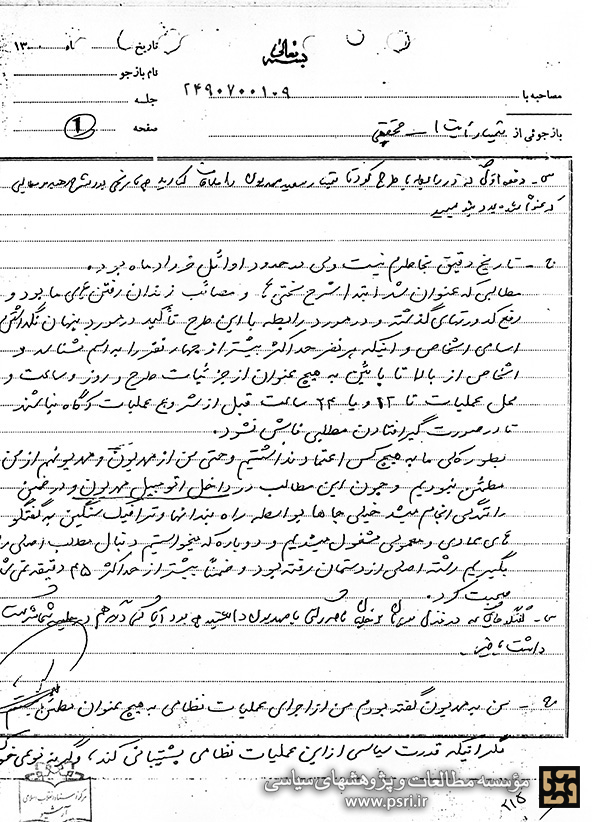 بسمه تعالی
تاریخ ماه ۱۳
نام بازجو
مصاحبه با ۲۴۹۰۷۰۰۱۰۹
جلسه
بازجوئی از تیمسار محققی
صفحه 1
س- دفعه اول که در رابطه با طرح کودتا تیمسار سعید مهدیون را ملاقات کردید چه تاریخی بود و شرح دهید چه مطالبی
که عنوان شده بود بنویسید
ج - تاریخ دقیق بخاطرم نیست ولی در حدود اوائل خرداد ماه بود.
مطالبی که عنوان شد ابتدا شرح سختی ها و مصائب زندان رفتن های ما بود و
رفع کدورتهای گذشته و در مورد رابطه با این طرح تأکید در مورد پنهان نگداشتن
اسامی اشخاص و اینکه هر نفر حداکثر بیشتر از چهار نفر را به اسم نشناسد و
اشخاص از بالا تا پائین به هیچ عنوان از جزئیات طرح و روز و ساعت و
محل عملیات تا ۱۲ و یا ۲۴ ساعت قبل از شروع عملیات آگاه نباشند
تا در صورت گیر افتادن مطالبی فاش نشود.
بطور کلی ما به هیچ کس اعتماد نداشتیم و حتی من از مهدیون و مهدیون هم از من
مطمئن نبودیم و چون این مطالب در داخل اتومبیل مهدیون و در ضمن
رانندگی انجام میشد خیلی جاها بواسطه راه بندانها و ترافیک سنگین به گفتگو
های عادی و معمولی مشغول میشدیم و دوباره که میخواستیم دنبال مطلب اصلی را
بگیریم رشته اصلی از دستمان رفته بود و ضمناً بیشتر از حداکثر ۴۵ دقیقه نمی شد
صحبت کرد.
س- گفتگوهائی که در منزل با مهدیون داشتید چه بود آیا کس دیگری هم در جلسه شما شرکت
داشت یا خیر.
ج - من به مهدیون گفته بودم من از اجرای عملیات نظامی به هیچ عنوان مطمئن نیستم
مگر اینکه قدرت سیاسی از این عملیات نظامی پشتیبانی کند، وگرنه نوعی
مؤسسه مطالعات و پژوهشهای سیاسی
www.psri.ir
مرکز اسناد انقلاب اسلامی
آرشیو
۲۱۵